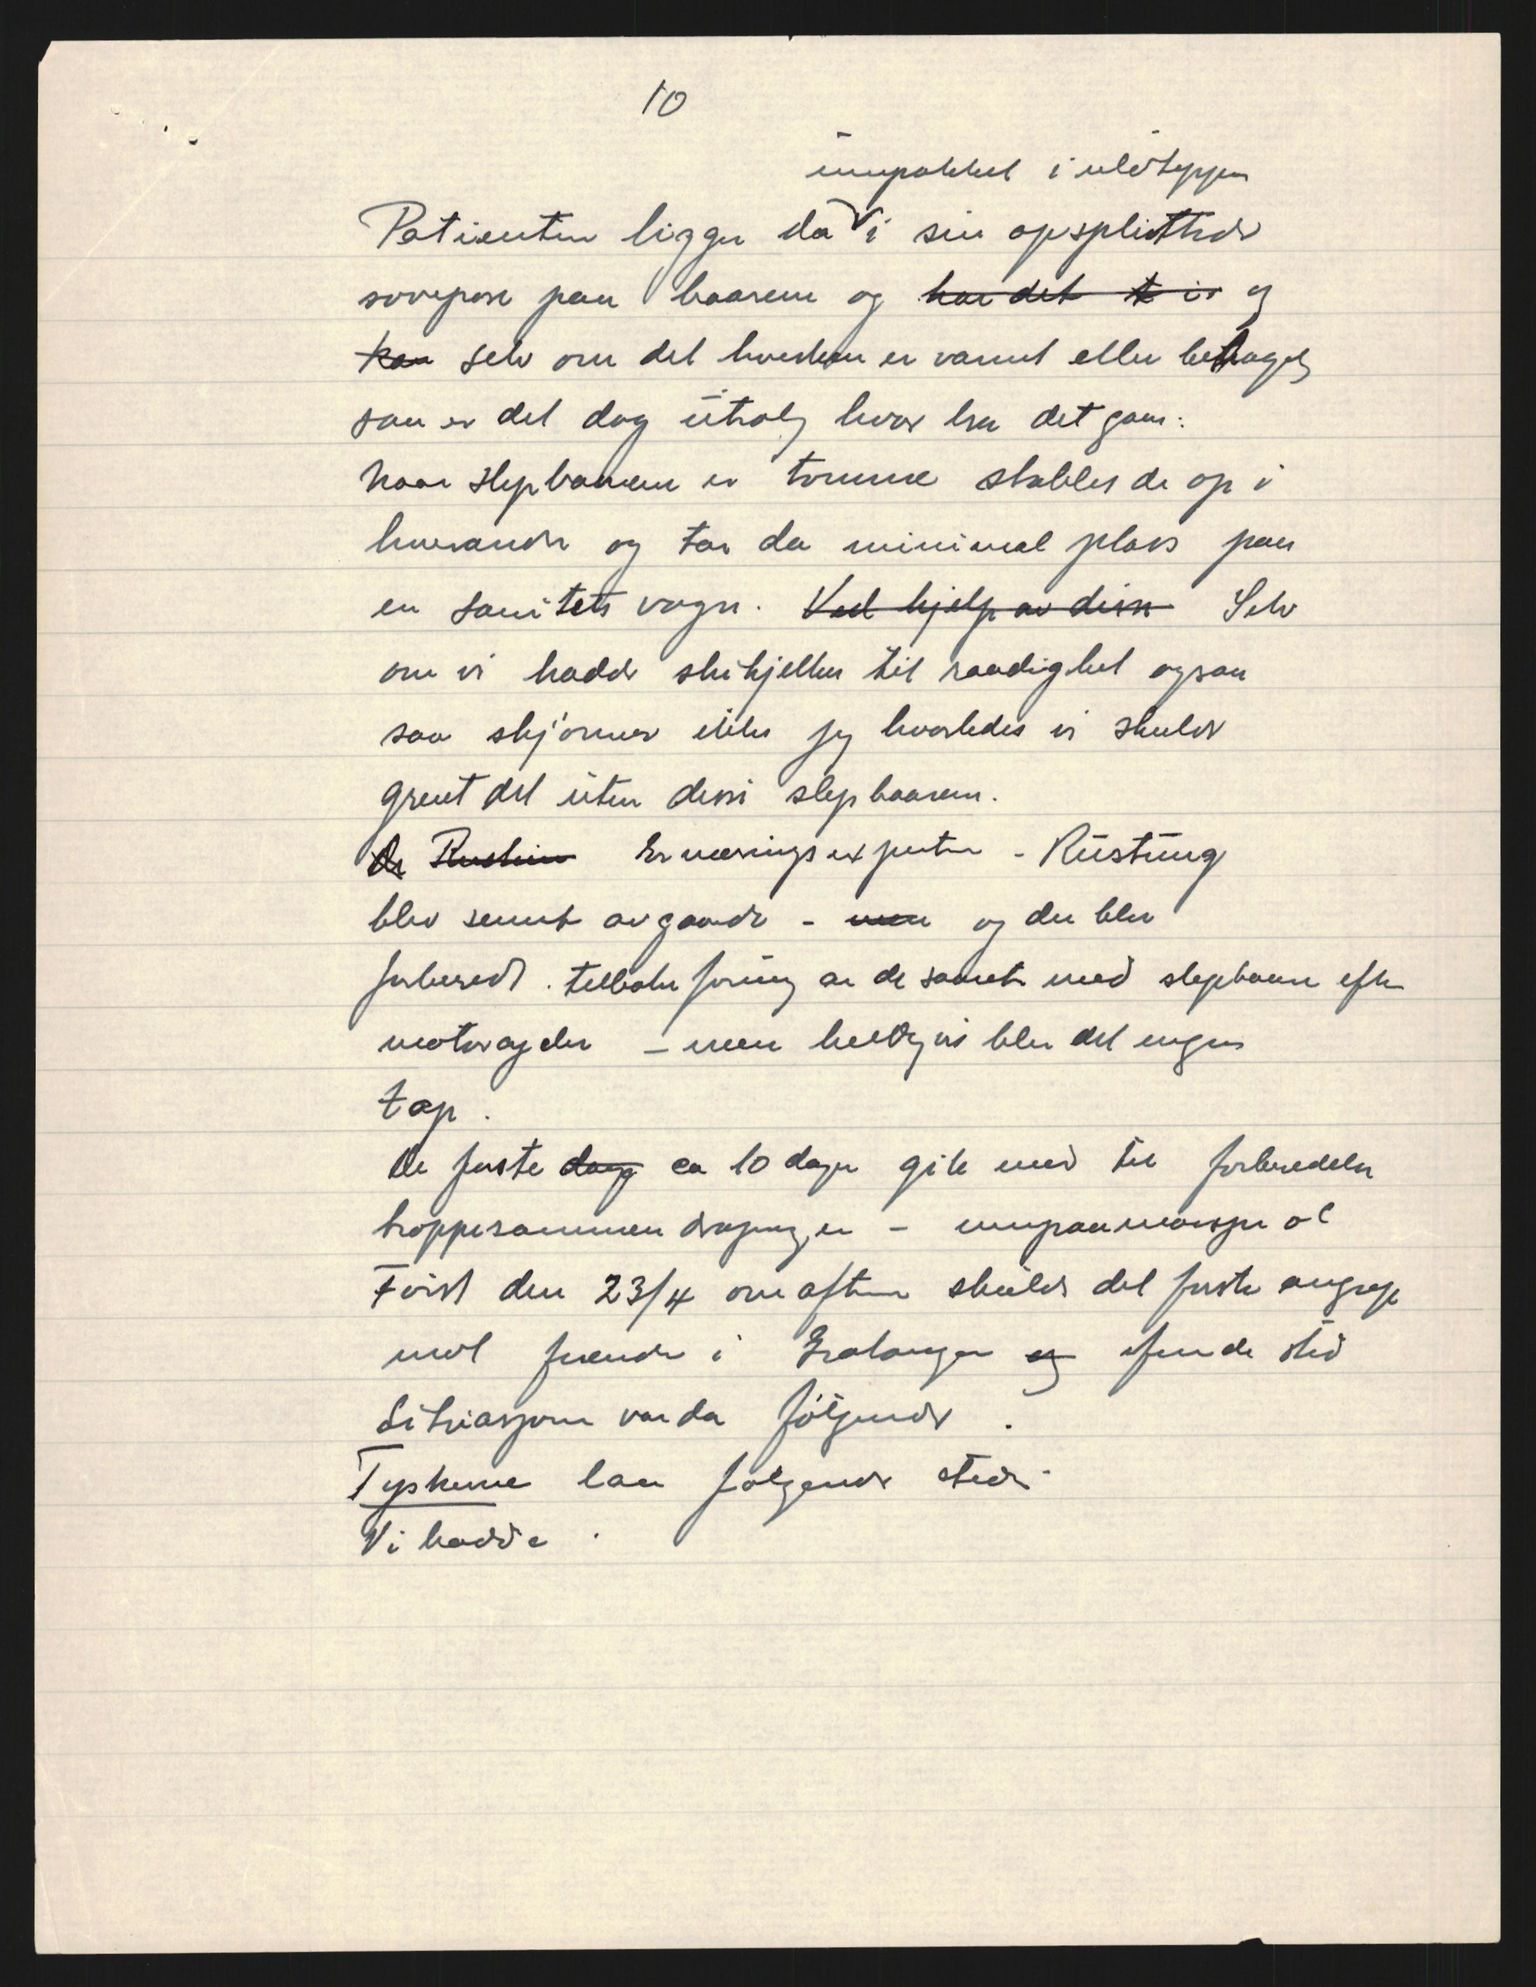 10
innpakket i uldtepper
Patienten ligger da i sin opsplittede
sovepose paa baaren og har det og
kan selv om det hverken er varmt eller behagelig
saa er det dog utrolig hvor bra det gaar.
Naar slepbaarene er tomme stables de op i
hverandre og tar da minimal plass paa
en sanitets vogn. Ved hjelp av disse Selv
om vi hadde skikjelker til raadighet ogsaa
saa skjønner ikke jeg hvorledes vi skulde
greiet det uten disse slepbaarene.
De Ernæringsexperten - Rustung
blev sendt avgaarde - men og der blev
forberedt tilbakeføring av de saarete med slepbaare efter
motorveier - men heldigvis blev det ingen
tap.
De første dag ca 10 dager gik med til forberedelser
troppesammendragninger -
Først den 23/4 om aftenen skulde det første angrep
mot fienden i Gratangen og finde sted
Situasjonen var da følgende.
Tyskerne laa følgende steder
Vi hadde.